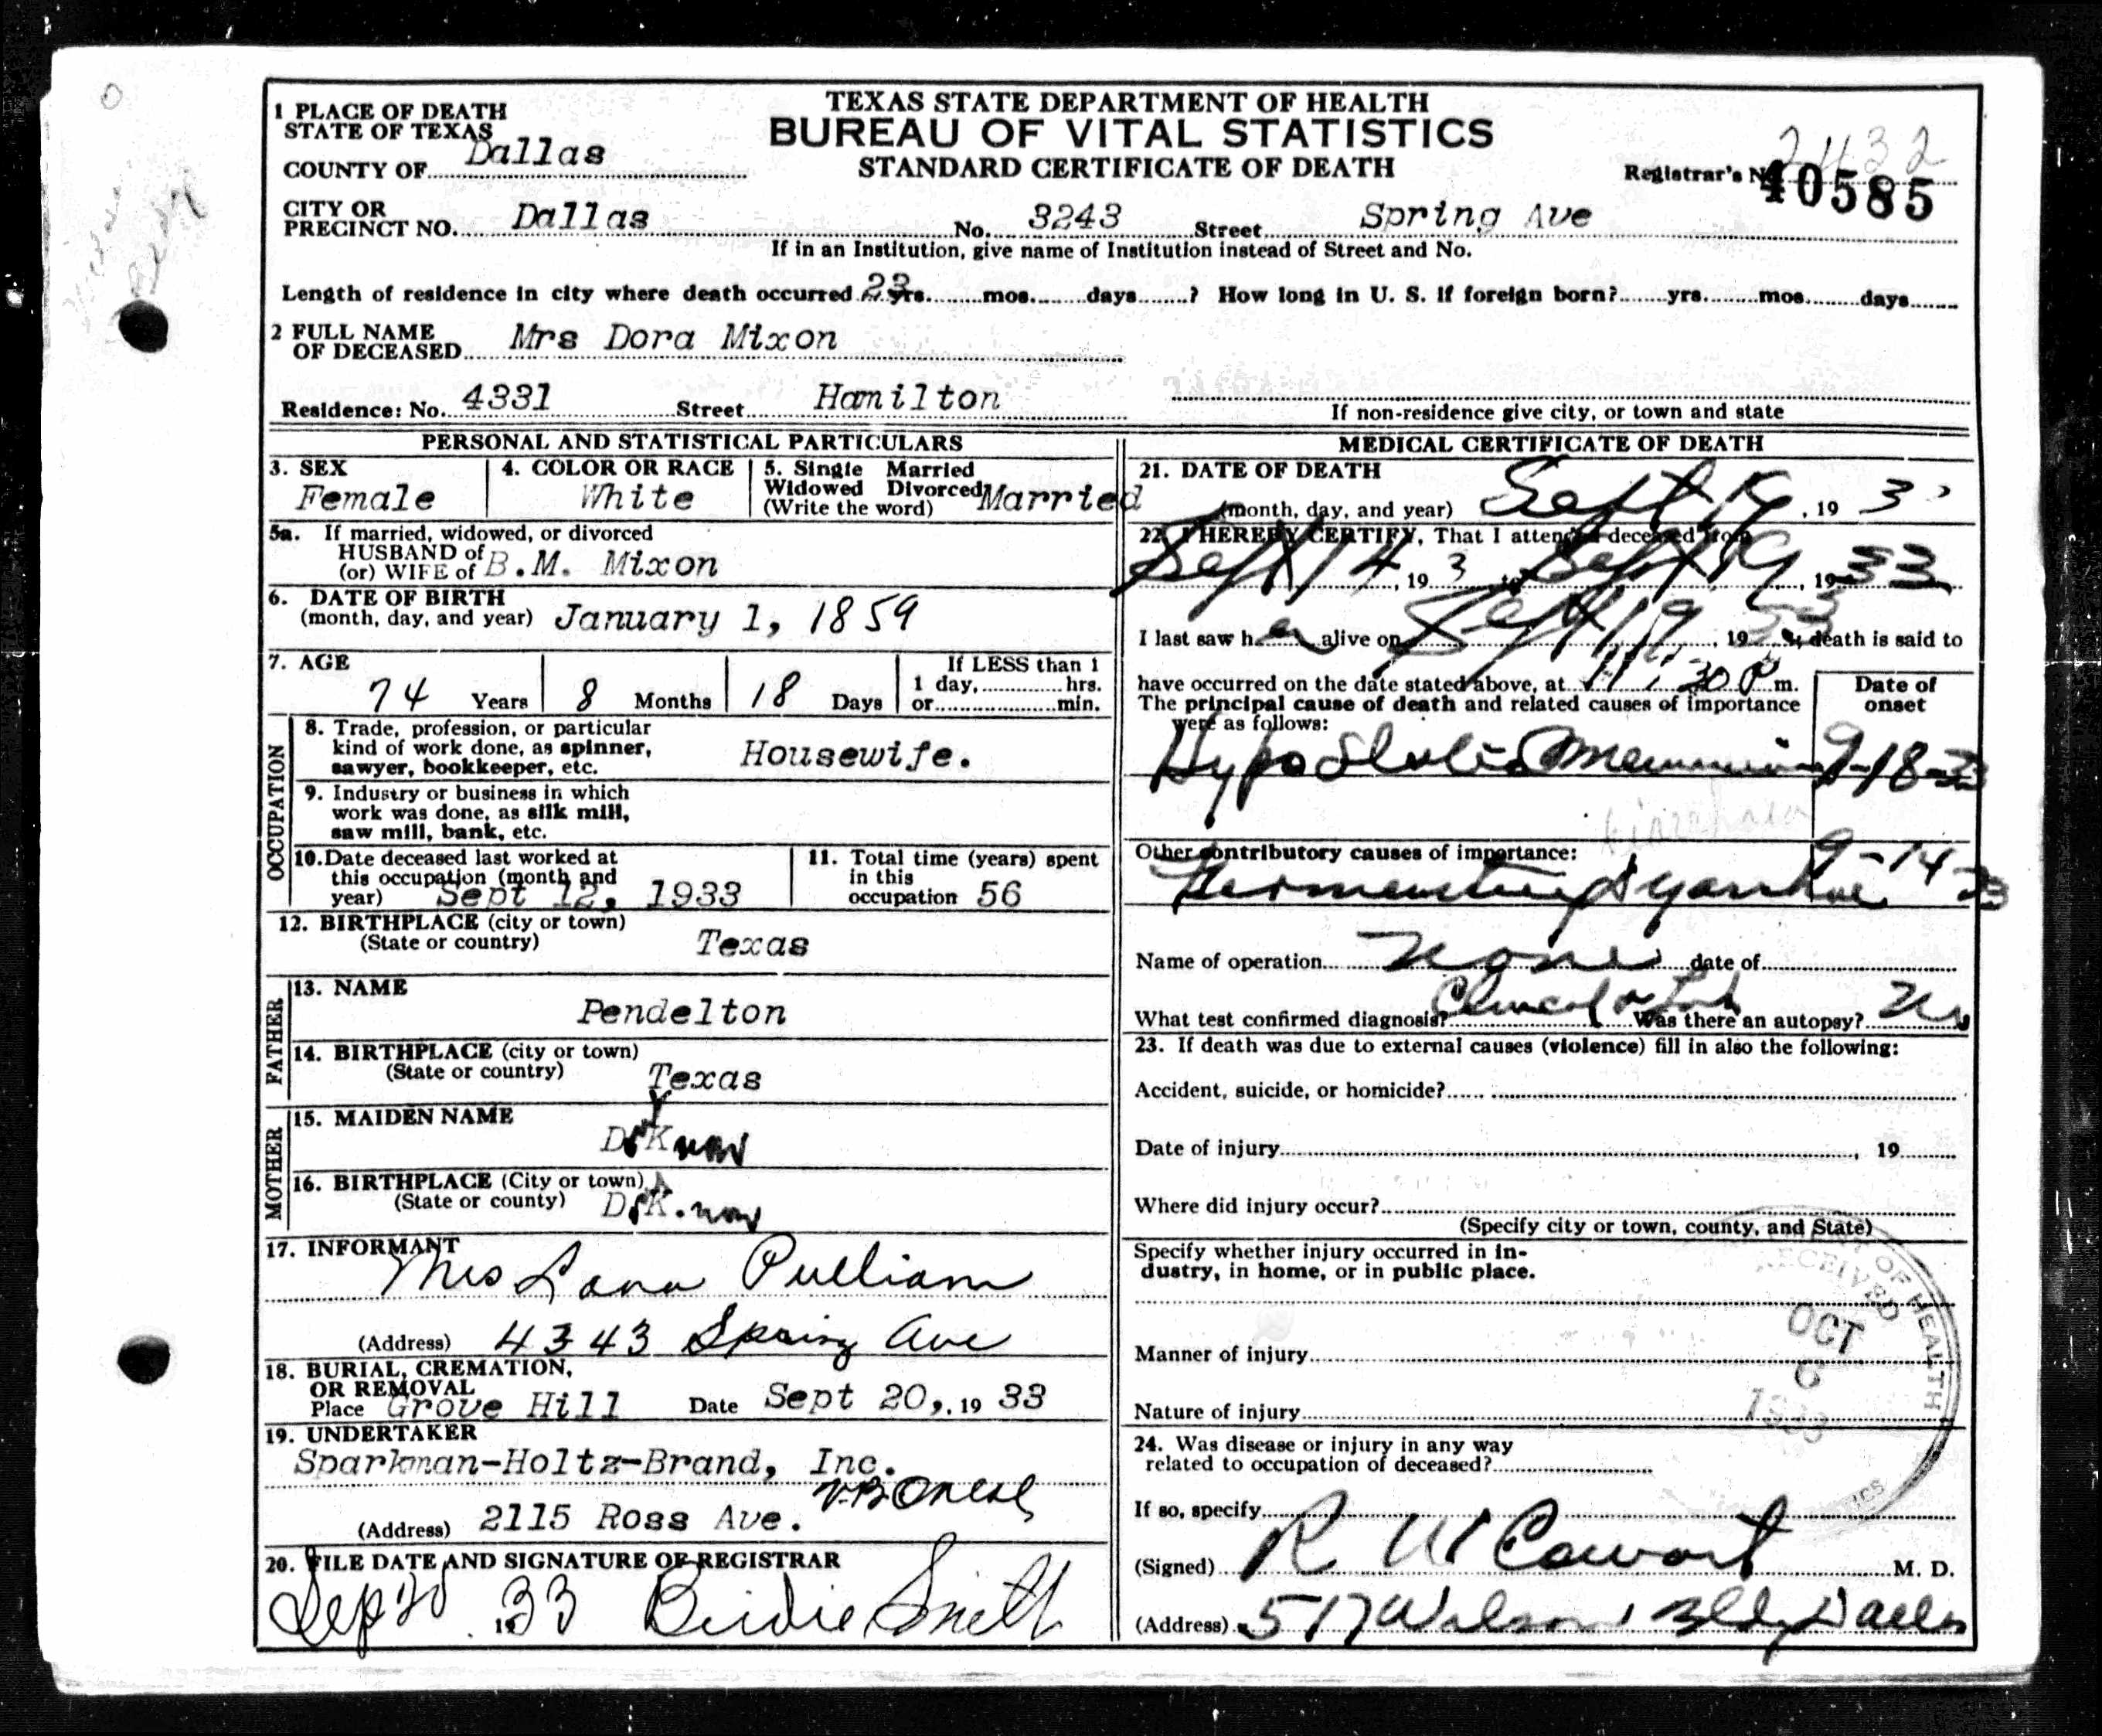 TEXAS STATE DEPARTMENT OF HEALTH
BUREAU OF VITAL STATISTICS
STANDARD CERTIFICATE OF DEATH
1 PLACE OF DEATH
STATE OF TEXAS
COUNTY OF Dallas
Registrar's No. 2432
40585
CITY OR
PRECINCT NO. Dallas No. 3243 Street Spring Ave
If in an Institution, give name of Institution instead of Street and No.
Length of residence in city where death occurred 23 yrs. mos. days ? How long in U. S. if foreign born? yrs. mos. days
2 FULL NAME
OF DECEASED Mrs Dora Mixon
Residence: No. 4331 Street Hamilton
If non-residence give city, or town and state
PERSONAL AND STATISTICAL PARTICULARS
3. SEX Female
4. COLOR OR RACE White
5. Single Married
Widowed Divorced Married
(Write the word)
5a. If married, widowed, or divorced
HUSBAND of
(or) WIFE of B.M. Mixon
6. DATE OF BIRTH
(month, day, and year) January 1, 1859
7. AGE
74 Years 8 Months 18 Days
If LESS than 1
1 day, hrs.
or min.
OCCUPATION
8. Trade, profession, or particular
kind of work done, as spinner,
sawyer, bookkeeper, etc. Housewife.
9. Industry or business in which
work was done, as silk mill,
saw mill, bank, etc.
10. Date deceased last worked at
this occupation (month and
year) Sept 12, 1933
11. Total time (years) spent
in this
occupation 56
12. BIRTHPLACE (city or town)
(State or country) Texas
FATHER
13. NAME
Pendelton
14. BIRTHPLACE (city or town)
(State or country) Texas
MOTHER
15. MAIDEN NAME
16. BIRTHPLACE (City or town)
(State or county)
17. INFORMANT
Mrs Pulliam
(Address) 4343 Spring Ave
18. BURIAL, CREMATION,
OR REMOVAL
Place Grove Hill Date Sept 20, 19 33
19. UNDERTAKER
Sparkman-Holtz-Brand, Inc.
(Address) 2115 Ross Ave.
20. FILE DATE AND SIGNATURE OF REGISTRAR
Sep 20 1933 Birdie
MEDICAL CERTIFICATE OF DEATH
21. DATE OF DEATH
(month, day, and year) Sept 19, 19 33
22. I HEREBY CERTIFY, That I attended deceased from
Sept 14, 19 3 to Sept 19, 19 33
I last saw her alive on Sept 19, 19 33; death is said to
have occurred on the date stated above, at 11:30 P m.
The principal cause of death and related causes of importance
were as follows:
Date of
onset
9-18-33
Other contributory causes of importance:
9-14 33
Name of operation None date of
What test confirmed diagnosis? Was there an autopsy? No
23. If death was due to external causes (violence) fill in also the following:
Accident, suicide, or homicide?
Date of injury , 19
Where did injury occur?
(Specify city or town, county, and State)
Specify whether injury occurred in in-
dustry, in home, or in public place.
Manner of injury
Nature of injury
24. Was disease or injury in any way
related to occupation of deceased?
If so, specify
(Signed) R W Cowart M. D.
(Address) 517 Wilson Bldg Dallas
RECEIVED
OF HEALTH
OCT
6
1933